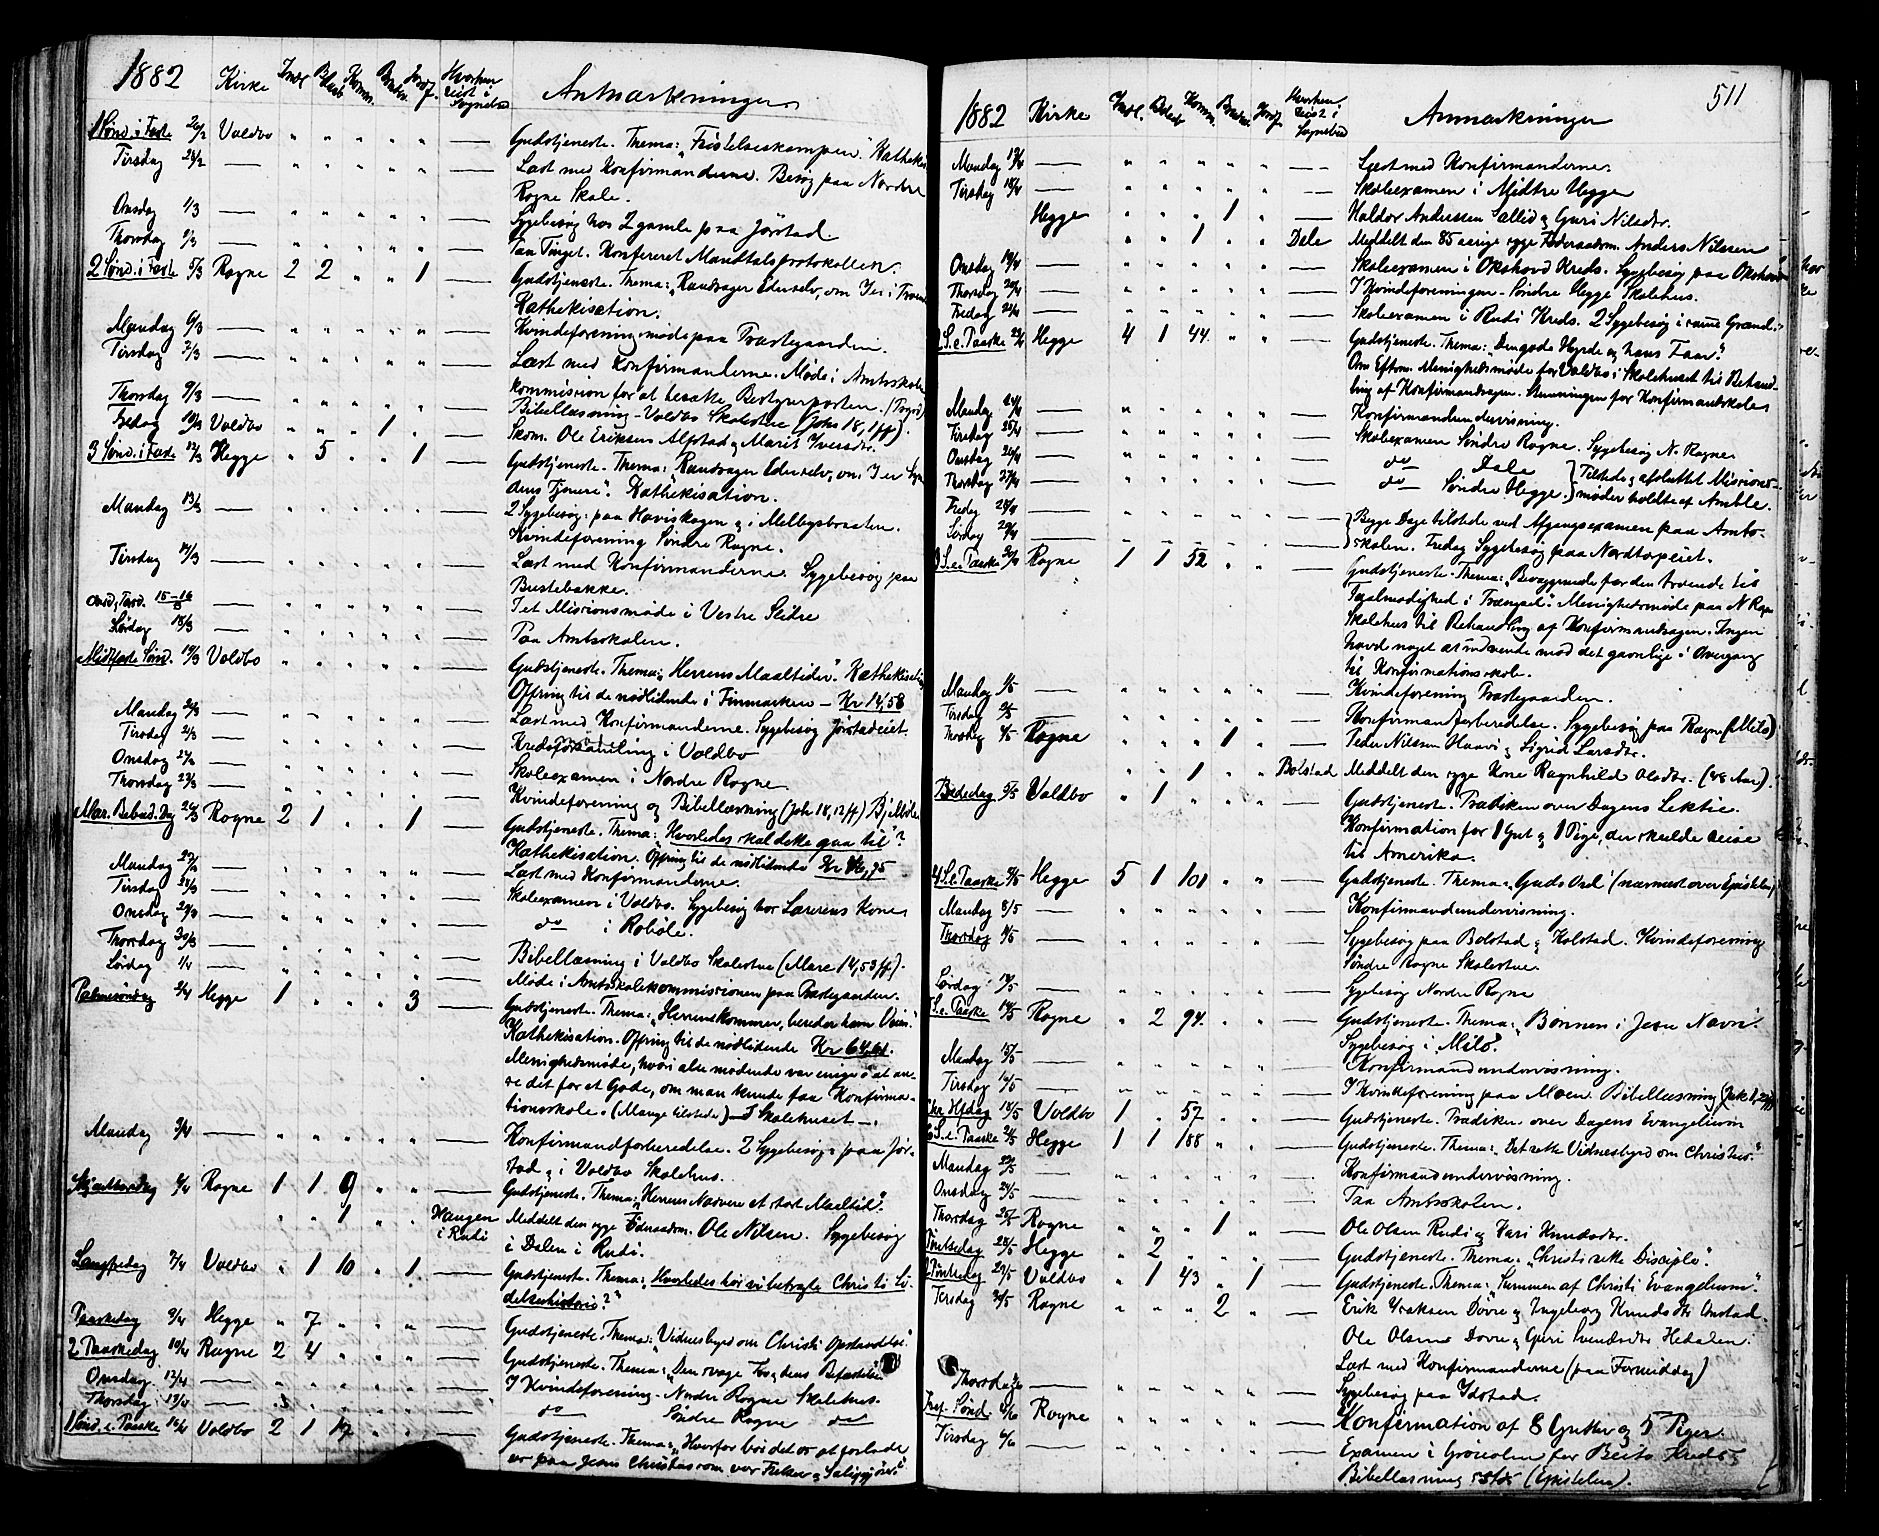 1882 Kirke Anmærkninger
1 Sønd. i Faste 26/2 Voldbo " " " " " — Gudstjeneste. Thema: "Fristelseskampen".
Tirsdag 28/2 — " " " " " — Læst med Konfirmanderne. Besøg paa Nordre
Rogne Skole.
Onsdag 1/3 — " " " " " — Sygebesøg hos 2 gamle paa Jørstad.
Thorsdag 2/3 — " " " " " — Paa Tinget. Konfereret Mandtalsprotokollen.
2 Sønd. i Faste 5/3 Rogne 2 2 " " 1 — Gudstjeneste. Thema:
Kathekisation.
Mandag 6/3 — " " " " " — Kvindeforeningsmøde paa Præstegaarden.
Tirsdag 7/3 — " " " " " — Læst med Konfirmanderne. Møde i Amtsskole
Thorsdag 9/3 — " " " " " — kommision for at besætte Bestyrerposten.
Bibellæsning - Voldbo Skolestue (Joh 18, 1 ff).
Fredag 10/3 Voldbo " " " 1 " — Skom. Ole Eriksen Alfstad & Marit Iversdr.
3 Sønd. i Faste 12/3 Hegge " 5 " " 1 — Gudstjeneste. Thema:
dens Tjenere". Kathekisation.
Mandag 13/3 — " " " " " — 2 Sygebesøg: paa Haviskagen & i Melbysbraaten.
Kvindeforening Søndre Rogne.
Tirsdag 14/3 — " " " " " — Læst med Konfirmanderne. Sygebesøg paa
Bustebakke.
Onsd. Torsd. 15-16/3 — " " " " " — I et Missionsmøde i Vestre Slidre
Lørdag 18/3 — " " " " " — Paa Amtsskolen.
Midfaste Sønd. 19/3 Voldbo " " " " " — Gudstjeneste. Thema: "Herrens Maaltider".
Offring til de nødlidende i Finmarken - Kr 14,58
Mandag 20/3 — " " " " " — Læst med Konfirmanderne. Sygebesøg Jørstadeiet.
Tirsdag 21/3 — " " " " " — i Voldbo
Onsdag 22/3 — " " " " " — Skoleexamen i Nordre Rogne.
Thorsdag 23/3 — " " " " " — Kvindeforening og Bibellæsning (Joh 18, 12 ff)
Mar. Bebud. Dag 26/3 Rogne 2 1 " " 1 — Gudstjeneste. Thema: "Hvorledes skal dette gaa til"?
Kathekisation. Offring til de nødlidende
Mandag 27/3 — " " " " " — Læst med Konfirmanderne.
Tirsdag 28/3 — " " " " " — Skoleexamen i Voldbo. Sygebesøg hos Lærerens Kone
Onsdag 29/3 — " " " " " — do i Robøle.
Thorsdag 30/3 — " " " " " — Bibellæsning i Voldbo Skolestue (Marc 14, 53 ff).
Lørdag 1/4 — " " " " " — Møde i Amtsskolekommissionen paa Præstegaarden.
Palmesøndag 2/4 Hegge 1 " " " 3 — Gudstjeneste. Thema: "Herren kommer, bereder ham Veien".
Kathekisation. Offring til de nødlidende
Menighedsmøde, hvori alle mødende var enige i at an-
se det for et Gode, om man kunde faa Konfirma-
tionsskole. (Mange tilstede) - I Skolehuset -.
Mandag 3/4 — " " " " " — Konfirmandforberedelse. 2 Sygebesøg: paa Jør-
stad & i Voldbo Skolehus.
Skjærthorsdag 6/4 Rogne 1 1 9 " " — Gudstjeneste. Thema: "Herrens Nadvere et stort Maaltid".
" " 1 " " Haugen i Rudi Meddelt den syge Føderaadsm. Ole Nilsen. Sygebesøg
i Dalen i Rudi.
Langfredag 7/4 Voldbo " 1 10 " 1 — Gudstjeneste. Thema: "Hvorledes bør vi betragte Christi Li-
delseshistorie?"
Paaskedag 9/4 Hegge " 7 " " " — Gudstjeneste. Thema: "Vidnesbyrd om Christi Opstandelse".
2 Paaskedag 10/4 Rogne 2 4 " " " — Gudstjeneste. Thema: "Den svage Tro & dens Befæstelse"
Onsdag 12/4 — " " " " " — I Kvindeforening - Nordre Rogne Skolehus.
Thorsdag 13/4 — " " " " " — do Søndre Rogne do
1 Sønd. e. Paaske 16/4 Voldbo 2 1 17 " " — Gudstjeneste. Thema: "Hvorfor bør det os at forlade
os paa Jesus Christus som vor Frelser & Saliggjører".
511
1882 Kirke Anmærkninger
Mandag 17/4 — " " " " " — Læst med Konfirmanderne.
Tirsdag 18/4 — " " " " " — Skoleexamen i Midtre Hegge
Hegge " " " 1 " — Haldor Andersen Sælid & Guri Nilsdr.
" " 1 " " Dele Meddelt den 85 aarige syge Føderaadsm. Anders Nilssen
Onsdag 19/4 — " " " " " — Skoleexamen i Okshovd Kreds. Sygebesøg paa Okshovd
Thorsdag 20/4 — " " " " " — I Kvindeforeningen - Søndre Hegge Skolehus.
Fredag 21/4 — " " " " " — Skoleexamen i Rudi Kreds. 2 Sygebesøg i samme Grænd.
2 S. e. Paaske 23/4 Hegge 4 1 44 " " — Gudstjeneste. Thema: "Den gode Hyrde og hans Faar".
Om Efterm. Menighedsmøde for Voldbo i Skolehuset til Behand-
ling af Konfirmandsagen. Stemningen for Konfirmandskolen
Mandag 24/4 — " " " " " — Konfirmandundervisning.
Tirsdag 25/4 — " " " " " — Skoleexamen Søndre Rogne. Sygebesøg N. Rogne
Onsdag 26/4 — " " " " " — do Dale } Tilstede & afsluttet Missions-
Thorsdag 27/4 — " " " " " — do Søndre Hegge. } møder holdte af Amble.
Fredag 28/4 — " " " " " — Begge Dage tilstede ved Afgangsexamen paa Amts-
Lørdag 29/4 — " " " " " — skolen. Fredag Sygebesøg paa Nordtorpeiet.
3 S. e. Paaske 30/4 Rogne 1 1 52 " " — Gudstjeneste. Thema: "Bevæggrunde for den troende til
Taalmodighed i Trængsel". Menighedsmøde paa N Rogne
Skolehus til Behandling af Konfirmandsagen. Ingen
havde noget at indvende mod det gavnlige i Overgang
til Konfirmationsskole.
Mandag 1/5 — " " " " " — Kvindeforening Præstegaarden.
Tirsdag 2/5 — " " " " " — Konfirmandforberedelse. Sygebesøg paa Rogne (Milo)
Thorsdag 4/5 Rogne " " " 1 " — Peder Nilssen Haavi & Sigrid Larsdr.
" " 1 " " Bolstad Meddelt den syge Kone Ragnhild Olsdr.
Bededag 5/5 Voldbo " 1 " " " — Gudstjeneste. Prædiken over Dagens Lektie.
Konfirmation for 1 Gut & 1 Pige, der skulde reise
til Amerika.
4 S. e. Paaske 7/5 Hegge 5 1 101 " " — Gudstjeneste. Thema: "Guds Ord" (nærmest over Epistelen)
Mandag 8/5 — " " " " " — Konfirmandundervisning.
Thorsdag 11/5 — " " " " " — Sygebesøg paa Bolstad & Holstad. Kvindeforening
Søndre Rogne Skolestue.
Lørdag 13/5 — " " " " " — Sygebesøg Nordre Rogne
5 S. e. Paaske 14/5 Rogne " 2 94 " " — Gudstjeneste. Thema: "Bønnen i Jesu Navn".
Sygebesøg i Milo.
Mandag 15/5 — " " " " " — Konfirmandundervisning.
Tirsdag 16/5 — " " " " " — I Kvindeforening paa Moen. Bibellæsning
Chr. Hfdag 18/5 Voldbo 1 " 57 " " — Gudstjeneste. Prædiken over Dagens Evangelium
6 S. e. Paaske 21/5 Hegge 1 1 188 " " — Gudstjeneste. Thema: "Det rette Vidnesbyrd om Christus."
Mandag 22/5 — " " " " " — Konfirmandundervisning.
Onsdag 24/5 — " " " " " — Paa Amtsskolen.
Thorsdag 25/5 Rogne " " " 1 " — Ole Olsen Rudi & Kari Knudsdr.
Pintsedag 28/5 Hegge " 2 " " " — Gudstjeneste. Thema: "Christi rette Disciple".
2 Pintsedag 29/5 Voldbo " 1 43 " 1 — Gudstjeneste. Thema: "Summen af Christi Evangelium".
Tirsdag 30/5 Rogne " " " 2 " — Erik Isaksen Dovre & Ingeborg Knudsdtr Onstad.
Ole Olsen Dovre & Guri Svendsdtr Hedalen.
Læst med Konfirmanderne (paa Formiddag)
Thorsdag 1/6 — " " " " " — Sygebesøg paa Ydstad.
Tref. Sønd. 4/6 Rogne " " " " " — Konfirmation af 8 Gutter og 5 Piger.
Tirsdag 6/6 — " " " " " — Examen i for Beito Kreds
Bibellæsning (Epistelen).